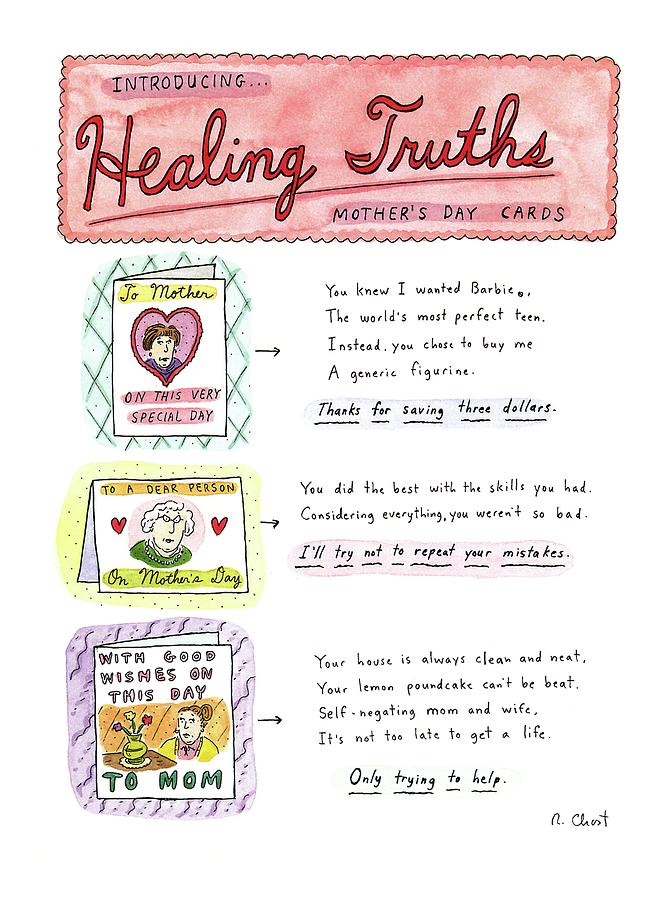 INTRODUCING...
Healing Truths
MOTHER'S DAY CARDS
To Mother
ON THIS VERY
SPECIAL DAY
You knew I wanted Barbie®,
The world's most perfect teen.
Instead, you chose to buy me
A generic figurine.
Thanks for saving three dollars.
TO A DEAR PERSON
On Mother's Day
You did the best with the skills you had.
Considering everything, you weren't so bad.
I'll try not to repeat your mistakes.
WITH GOOD
WISHES ON
THIS DAY
TO MOM
Your house is always clean and neat,
Your lemon poundcake can't be beat.
Self-negating mom and wife,
It's not too late to get a life.
Only trying to help.
R. Chast